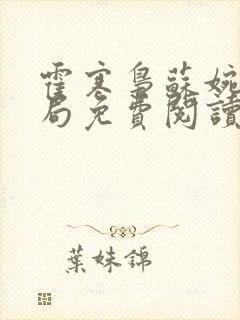 霍寒梟蘇婉
局免費閱讀
葉妹錦